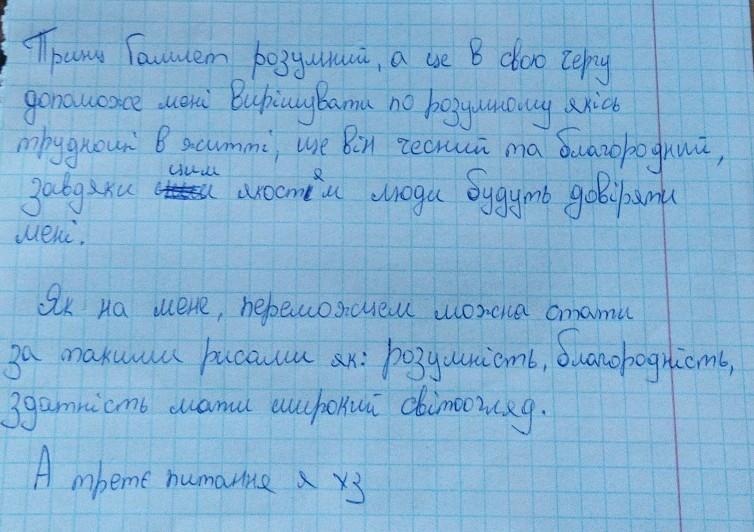 Принц Гамлет розумний, а це в свою чергу
допоможе мені вирішувати по розумному якісь
труднощі в житті, ще він чесний та благородний,
завдяки цим якостям люди будуть довіряти
мені.
Як на мене, переможцем можна стати
за такими рисами як: розумність, благородність,
здатність мати широкий світоогляд.
А третє питання я хз